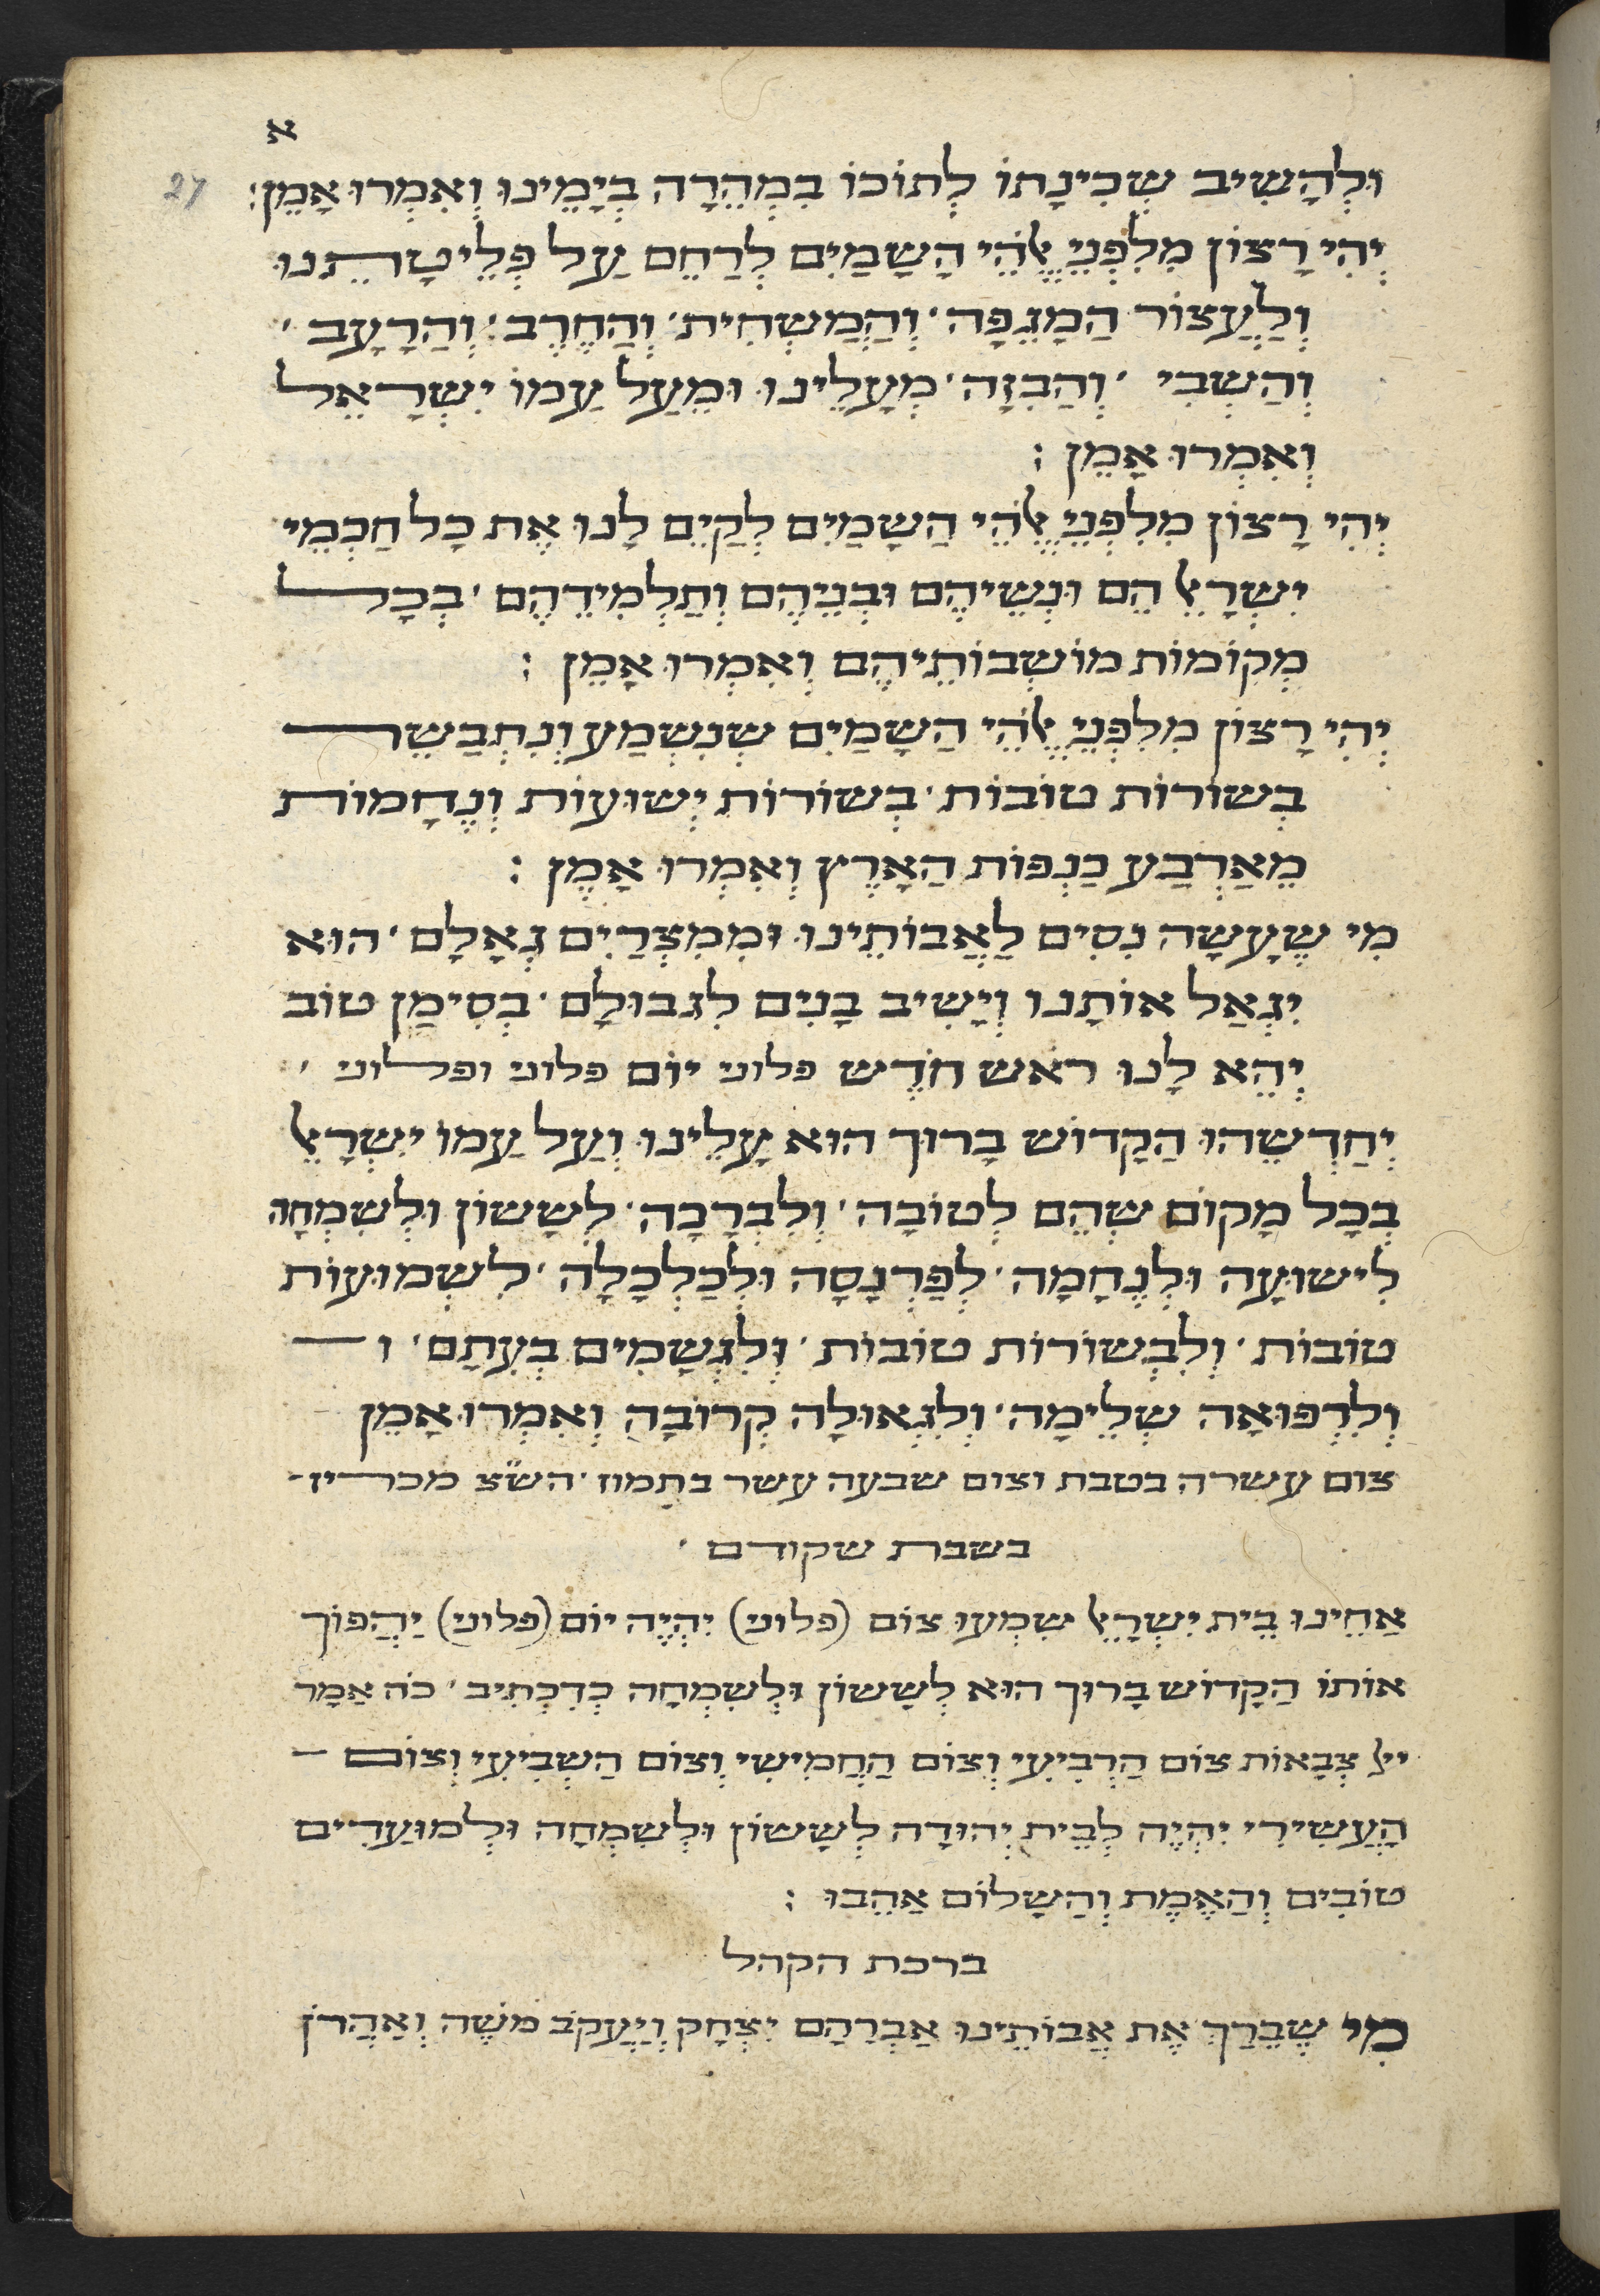 א
27
וּלְהָשִׁיב שְׁכִינָתוֹ לְתוֹכוֹ בִּמְהֵרָה בְיָמֵינוּ וְאִמְרוּ אָמֵן:
יְהִי רָצוֹן מִלִפְנֵי אֱלֹהֵי הָשָׁמַיִם לְרַחֵם עַל פְּלֵיטָתֵנוּ
וְלַעֲצוֹר הַמָגֵפָה' וְהַמַשְׁחִית' וְהַחֶרֶב' וְהָרָעָב'
וְהַשְׁבִי' וְהַבִּזָה' מְעָלֵינוּ וּמֵעַל עַמוֹ יִשְׂרָאֵל
וְאִמְרוּ אָמֵן:
יְהִי רָצוֹן מִלִפְנֵי אֱלֹהֵי הַשָׁמַיִם לְקַיֵם לָנוּ אֶת כָּל חַכְמֵי
יִשְׂרָאֵל הֵם וּנְשֵׁיהֶם וּבְנֵיהֶם וְתַלְמִידֵהֶם' בְּכָל
מְקוֹמוֹת מוֹשְׁבוֹתֵיהֶם וְאִמְרוּ אָמֵן:
יְהִי רָצוֹן מִלִפְנֵי אֱלֹהֵי הַשָׁמַיִם שְׁנִשְׁמַע וְנִתְבַשֵׂר
בְּשׂוֹרוֹת טוֹבוֹת' בְּשׂוֹרוֹת יְשׁוּעוֹת וְנֶחָמוֹת
מֵאַרְבַּע כַּנְפוֹת הַאָרֶץ וְאִמְרוּ אָמֶן:
מִי שֶׁעָשָׂה נִסִים לַאֲבוֹתֵינוּ וּמִמִצְרַיִם גְאָלָם' הוּא
יִגְאַל אוֹתָנוּ וְיָשִׁיב בָּנִים לִגבוּלָם' בְּסִימַן טוֹב
יְהֵא לָנוּ רֹאשׁ חֹדֶשׁ פלוני יוֹם פלוני ופלוני'
יְחַדְשֵׁהוּ הַקָדוֹשׁ בָּרוּך הוּא עָלֵינוּ וְעַל עַמוֹ יִשְׂרָאֵל
בְּכָל מָקוֹם שְׁהֵם לְטוֹבָה' וְלִבְרָכָה' לְשָׂשׂוֹן וּלְשִׂמְחָה
לִישׁוּעָה וּלְנֶחָמָה' לְפַּרְנָסָה וּלְכַלְכָּלָה' לִשְׁמוּעוֹת
טוֹבוֹת' וְלִבְשׂוֹרוֹת טוֹבוֹת' וּלִגְשָׁמִים בְּעִתָּם' ו
וְלִרְפוּאָה שְׁלֵימָה' וְלִגְאוּלָה קְרוֹבָה וְאִמְרוּ אָמֵן
צום עשרה בטבת וצום שבעה עשר בתמוז' הש"צ מכריז
בשבת שקודם'
אַחֵינוּ בֵּית יִשְׂרָאֵל שִׁמְעוּ צוֹם (פלוני) יִהְיֶה יוֹם (פלוני) יַהֲפוֹך
אוֹתוֹ הַקָדוֹשׁ בָּרוּך הוּא לְשָׂשׂוֹן וּלְשִׂמְחָה כְּדִכְתִיב' כֹּה אַמָר
ייל צְבָאוֹת צוֹם הַרְבִיעִי וְצוֹם הַחֲמִישִׁי וְצוֹם הַשְׁבִיעִי וְצוֹם
הָעֲשִׂירִי יִהְיֶה לְבֵית יְהוּדָה לְשָׂשׂוֹן וּלְשִׂמְחָה וּלְמוֹעַדִים
טוֹבִים וְהַאֶמֶת וְהַשָׁלוֹם אֵהָבוּ:
ברכת הקהל
מִי שֶׁבֵּרַךְ אֶת אֲבוֹתֵינוּ אַבְרָהָם יִצְחָק וְיַעֲקֹב מֹשֶׁה וְאַהֲרֹן